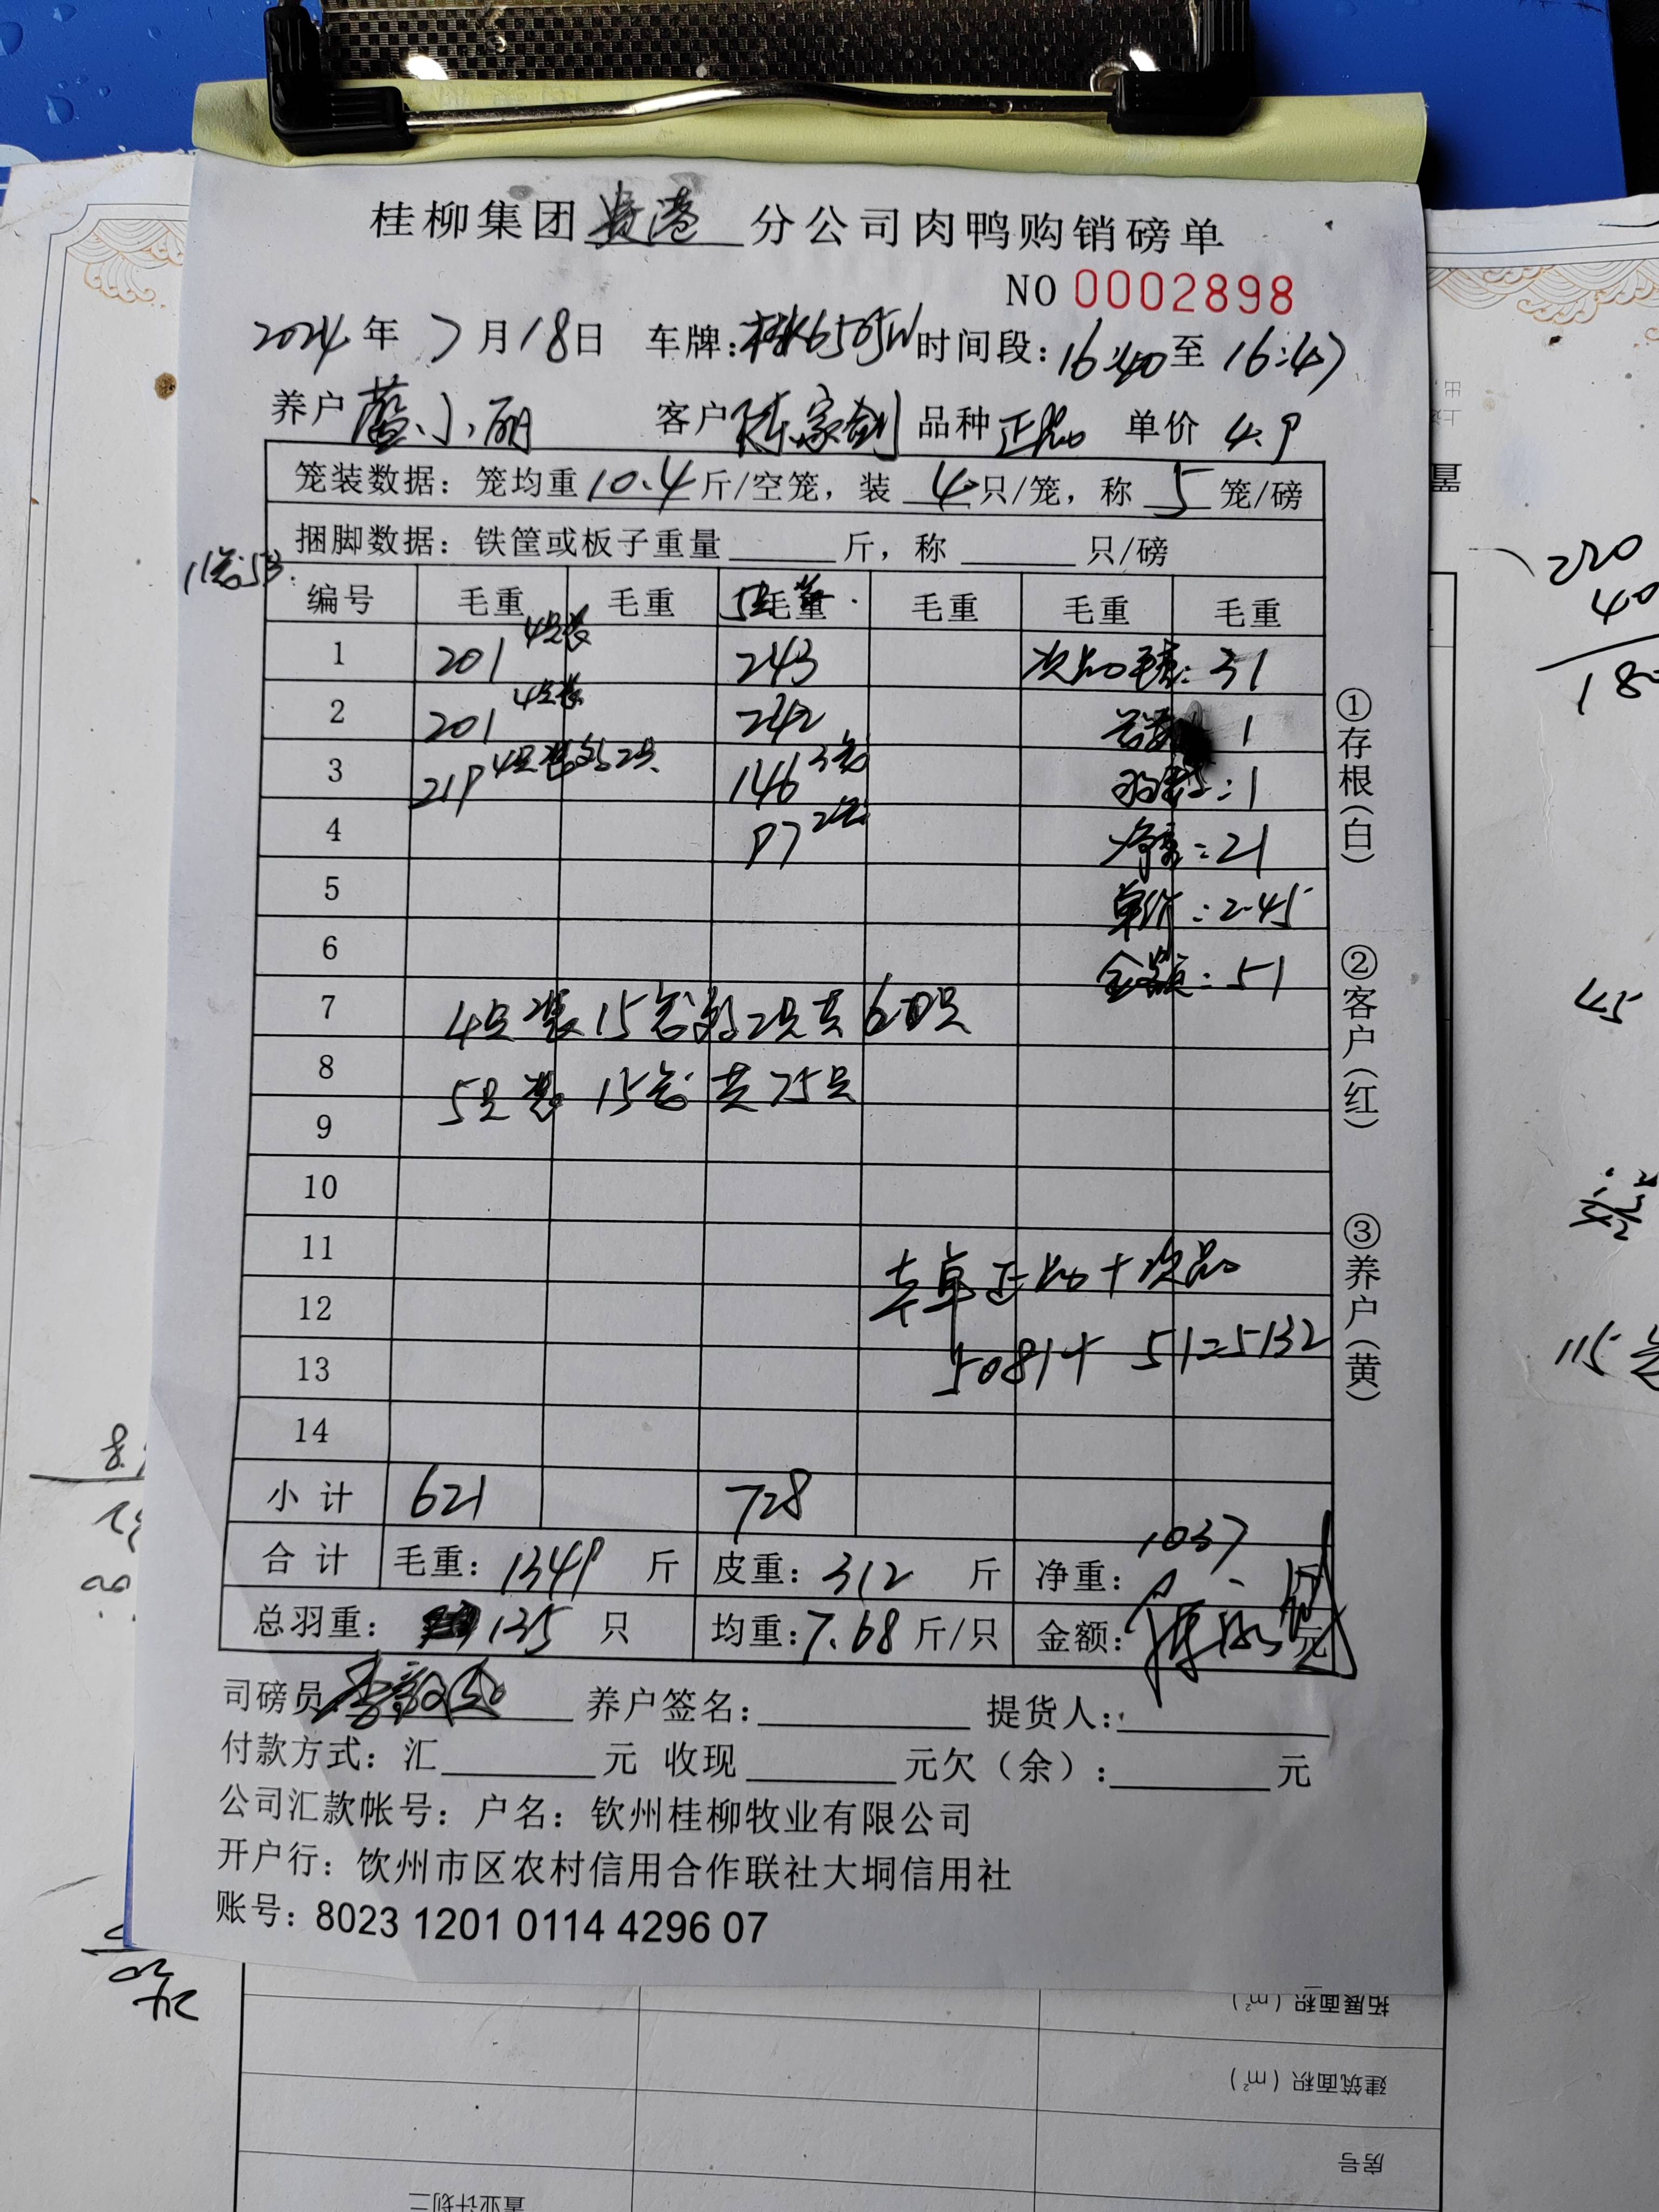 桂柳集团贵港分公司肉鸭购销磅单
NO 0002898
2024年7月18日 车牌:桂K6505W 时间段:16:40至16:47
养户 小丽 客户 陈家剑 品种 正品 单价 4.9
笼装数据:笼均重10.4斤/空笼,装4只/笼,称5笼/磅
捆脚数据:铁筐或板子重量 斤,称 只/磅
编号 毛重 毛重 5只装 毛重 毛重 毛重 毛重
1 201 4只装 243 次品毛重:31
2 201 4只装 242 笼数 1
3 219 4只装 2只 146 3笼 羽数:1
4 97 2笼 净重:21
5 单价:2.45
6 金额:51
7 4只装15笼 2只共60只
8 5只装15笼共75只
9
10
11 本单正品+次品
12
13 5081+51=5132
14
小计 621 728
合计 毛重:1349斤 皮重:312斤 净重:1037
总羽重:135只 均重:7.68斤/只 金额: 元
司磅员: 养户签名: 提货人:
付款方式:汇 元 收现 元欠(余): 元
公司汇款帐号:户名:钦州桂柳牧业有限公司
开户行:饮州市区农村信用合作联社大垌信用社
账号:8023 1201 0114 4296 07
①存根(白)
②客户(红)
③养户(黄)
220
40
180
45
115
拓展面积(m²)
建筑面积(m²)
房号
置业计划二